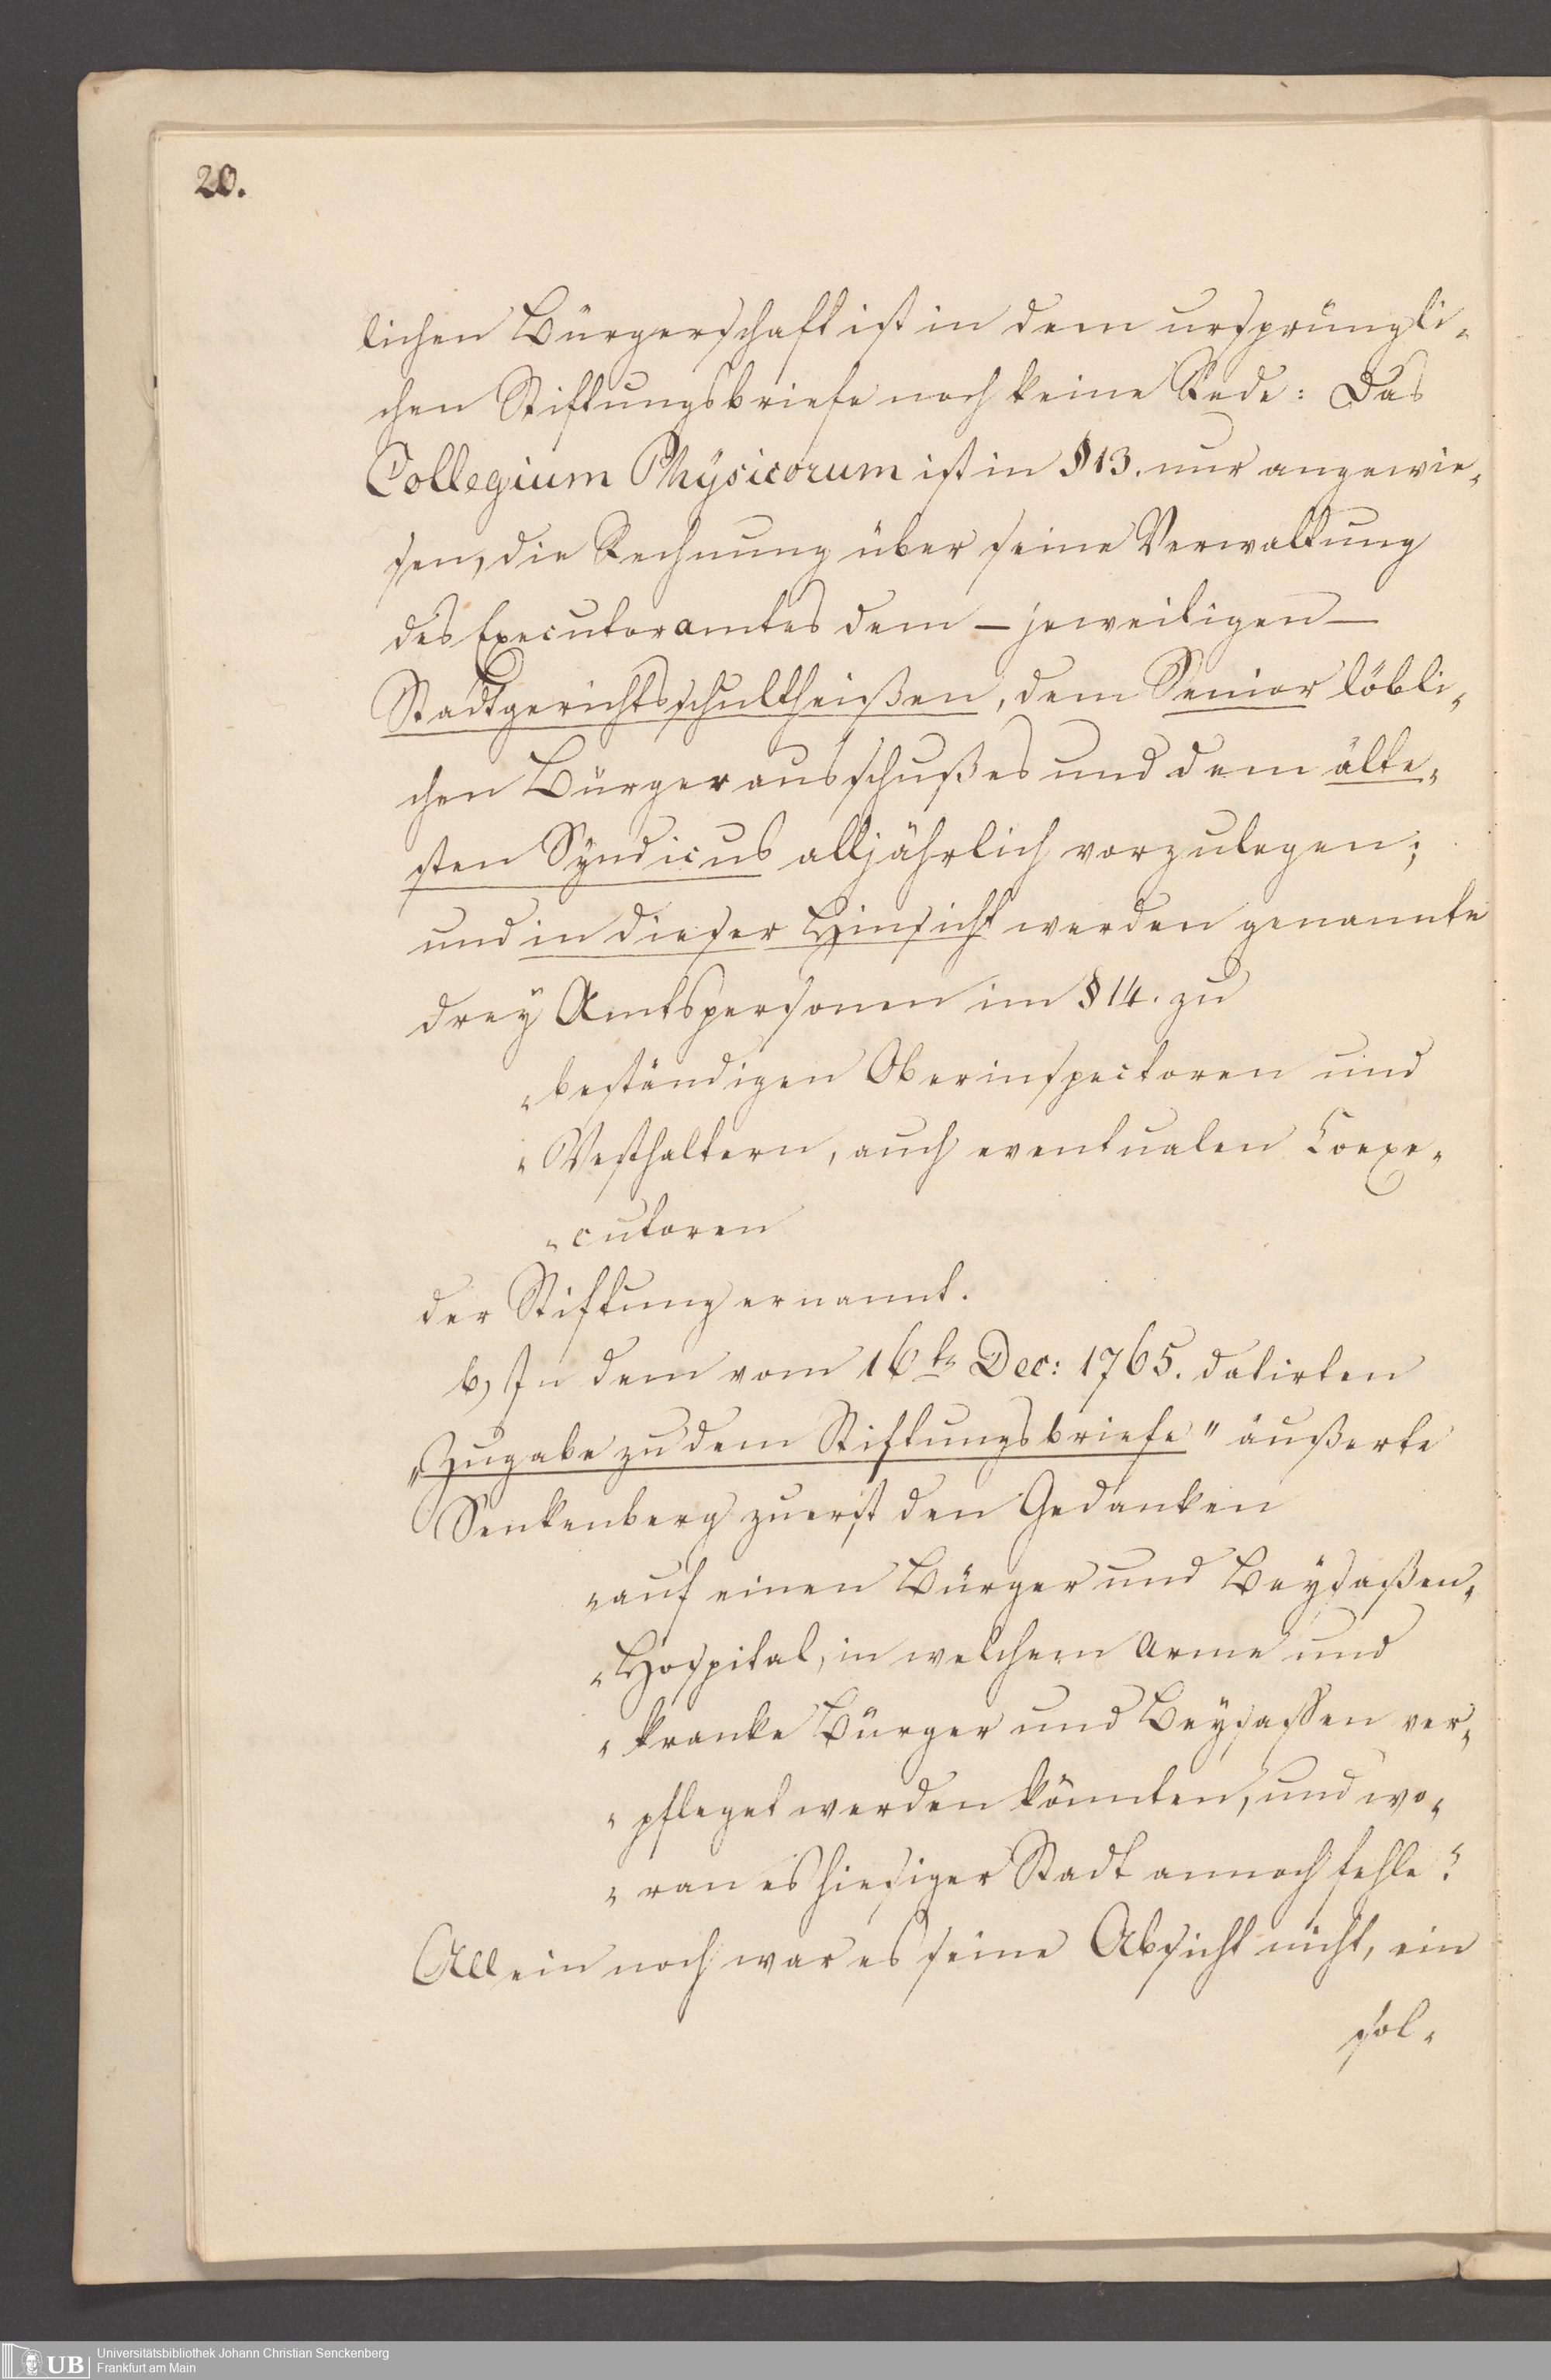 20.
lichen Bürgerschaft ist in dem ursprüngli-
chen Stiftungsbriefe noch keine Rede: Das
Collegium Physicorum ist in § 13. nur angewie-
sen, die Rechnung über seine Verwaltung
des Executoramtes dem – jeweiligen –
Stadtgerichtsschultheißen, dem Senior löbli-
chen Bürgerausschußes und dem älte-
sten Syndicus alljährlich vorzulegen;
und in dieser Hinsicht werden genannte
drey Amtspersonen im § 14. zu
„beständigen Oberinspectoren und
„Vesthaltern, auch eventualen Coexe-
„cutoren
der Stiftung ernannt.
b, In dem vom 16ts Dec: 1765. datirten
„Zugabe zu dem Stiftungsbriefe" äußerte
Senkenberg zuerst den Gedanken
„auf einen Bürger und Beysaßen-
„Hospital, in welchem arme und
„kranke Bürger und Beysassen ver-
„pfleget werden könnten, und wo-
„ran es hiesiger Stadt annoch fehle".
Allein noch war es seine Absicht nicht, ein
sol-
UB Universitätsbibliothek Johann Christian Senckenberg
Frankfurt am Main